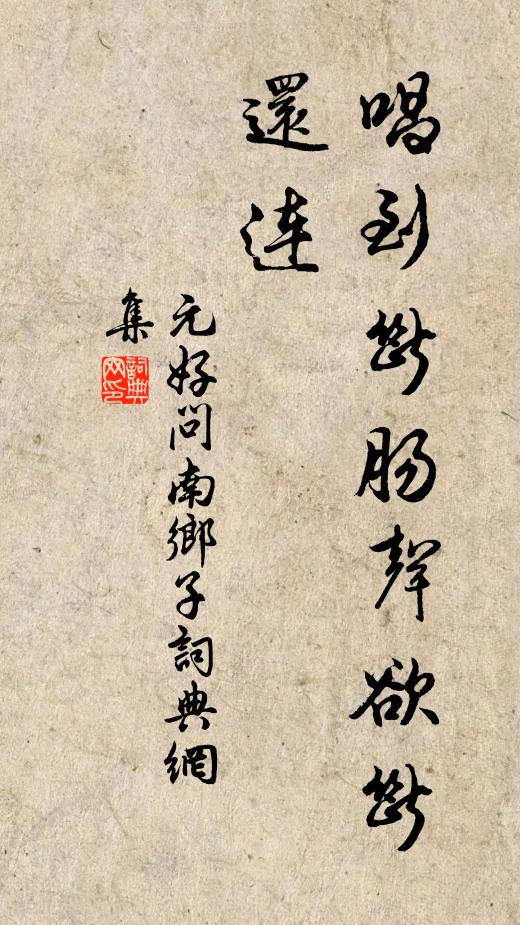 唱到斷腸聲欲斷
還連
元好問南鄉子詞典網
集
詞典
网印